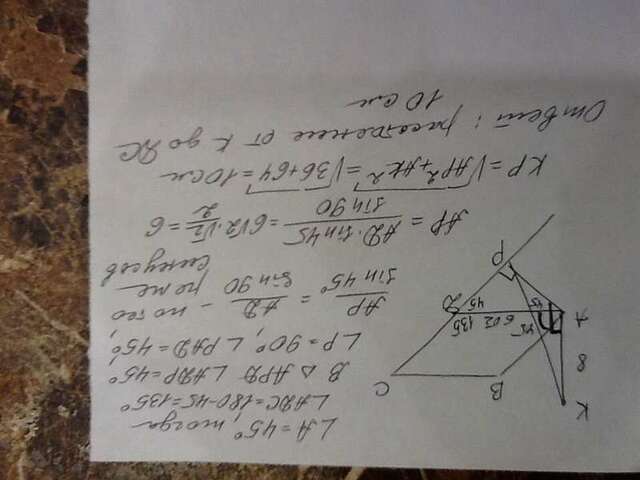 ∠A = 45°, тогда
∠ADC = 180 - 45 = 135°
В △ APD ∠ADP = 45°
∠P = 90°, ∠PAD = 45°,
AP / sin 45° = AD / sin 90 - по тео
реме
синусов
AP = AD · sin 45 / sin 90 = 6√2 · √2/2 = 6
KP = √AP² + AK² = √36 + 64 = 10 см
Ответ: расстояние от K до DC
10 см
K
8
B
C
A
45
6√2
135
D
45
45
P